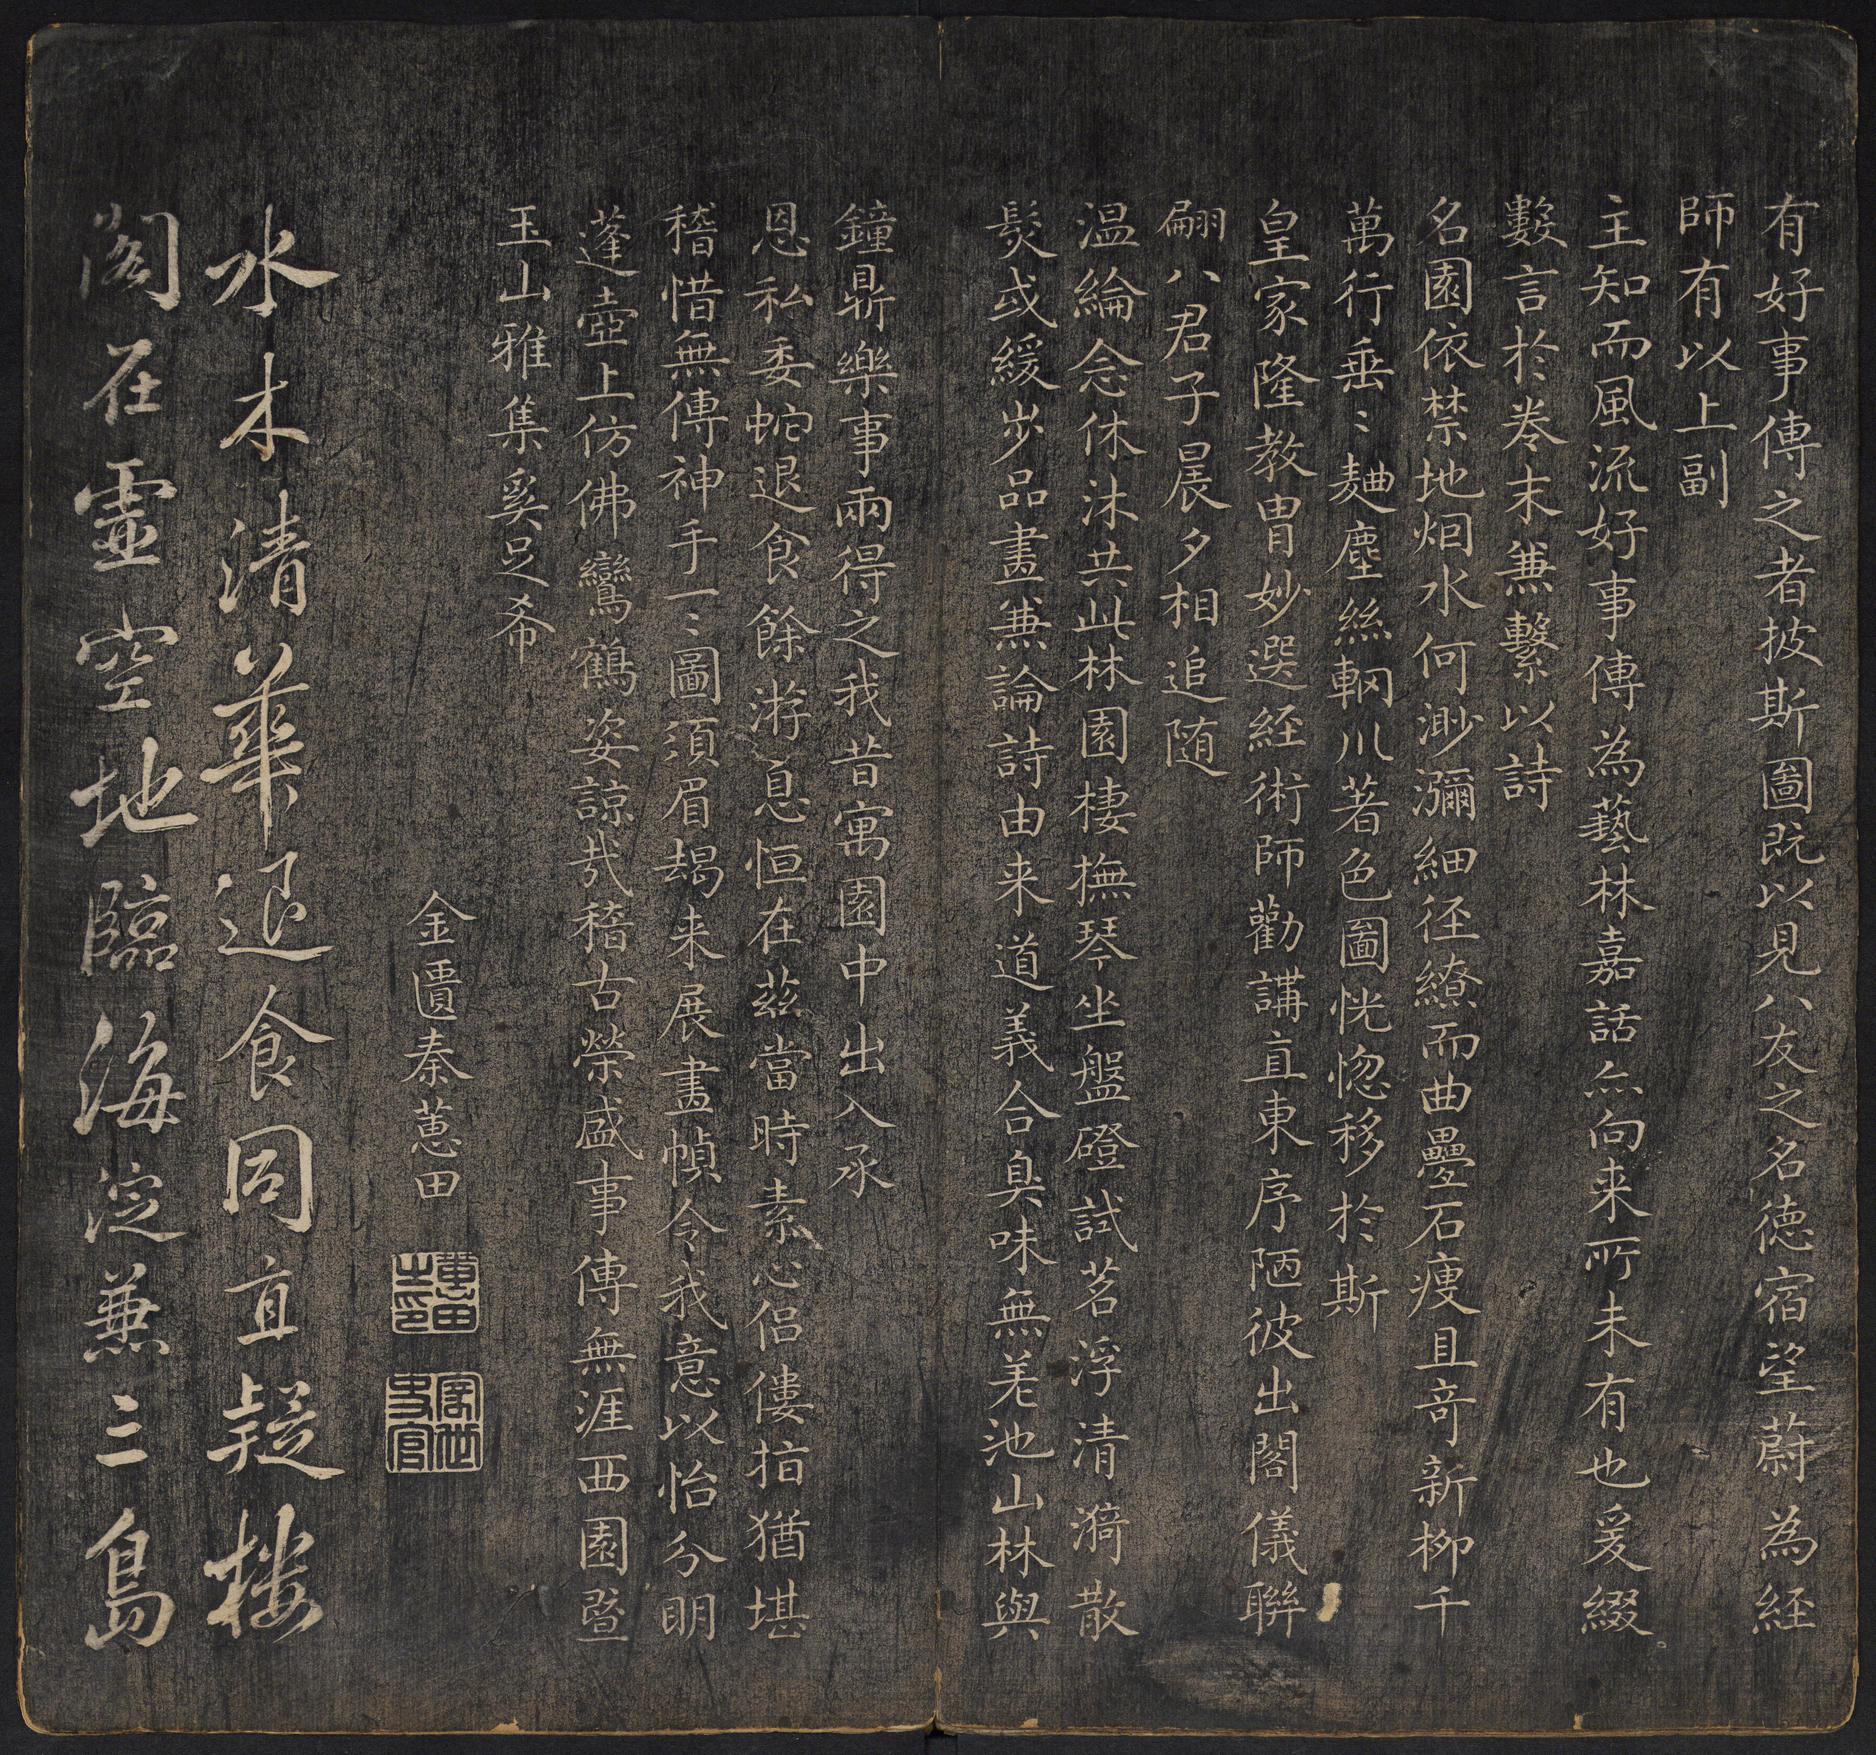 有好事傳之者披斯圖既以見八友之名德宿望蔚為経
師有以上副
主知而風流好事傳為藝林嘉話亦向来所未有也爰綴
數言於卷末兼繫以詩
名園依禁地烟水何渺瀰細徑繚而曲疊石瘦且奇新柳千
萬行垂〻麯塵絲輞川著色圖恍惚移於斯
皇家隆教胄妙選経術師勸講直東序陋彼出閣儀聯
翩八君子晨夕相追随
溫綸念休沐共此林園棲撫琴坐盤磴試茗浮清漪散
髮或緩步品畫兼論詩由来道義合臭味無差池山林與
鐘鼎樂事兩得之我昔寓園中出入承
恩私委蛇退食餘游息恒在茲當時素心侶僂指猶堪
稽惜無傳神手一〻圖須眉朅来展畫幀令我意以怡分明
蓬壺上仿佛鸞鶴姿諒哉稽古榮盛事傳無涯西園暨
玉山雅集奚足希
金匱秦蕙田
蕙田之印
水木清華退食同直疑樓
閣在靈空地臨海淀兼三島